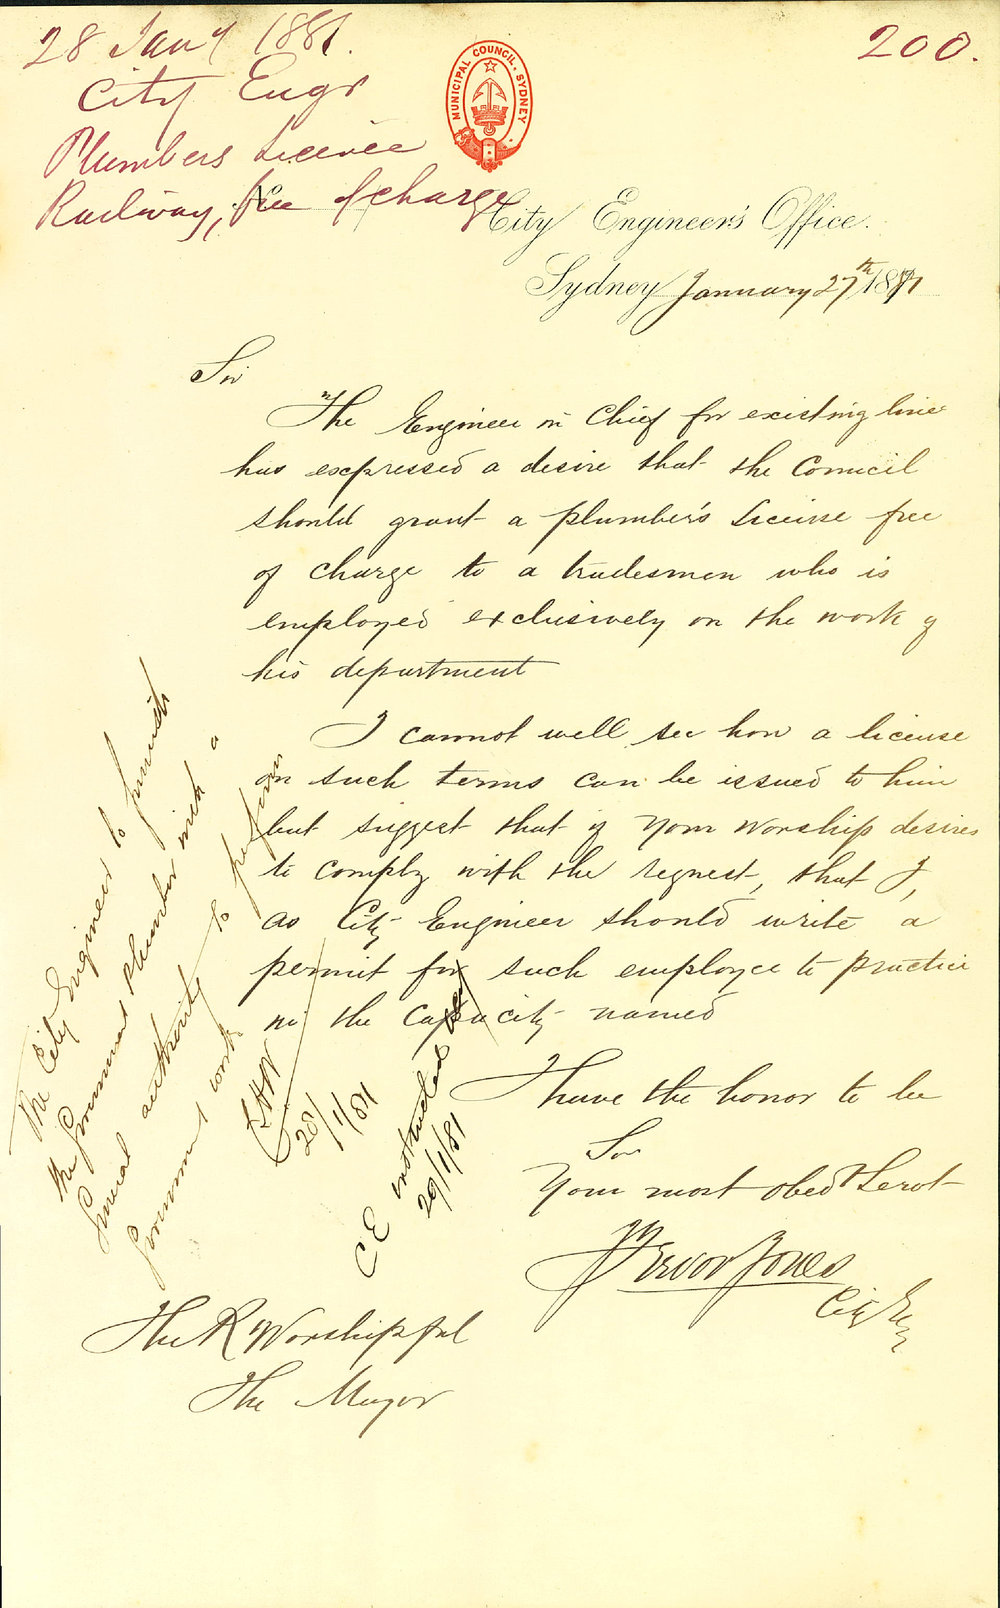 28 Jany 1881.
200.
City Engr
Plumbers Licence
Railway, free of charge
MUNICIPAL COUNCIL. SYDNEY
City Engineer's Office.
Sydney January 27th 1881
Sir
The Engineer in Chief for existing lines
has expressed a desire that the Council
should grant a plumber's License free
of charge to a tradesman who is
employed exclusively on the work of
his department
I cannot well see how a license
on such terms can be issued to him
but suggest that if Your Worship desires
to comply with the request, that I,
as City Engineer should write a
permit for such employee to practice
in the capacity named
I have the honor to be
Sir
Your most obedt Servt
Trevor Jones
City Engr
The R Worshipful
The Mayor
The City Engineer to furnish
the Government plumber with a
General authority to perform
Government work
28/1/81
CE instructed
29/1/81